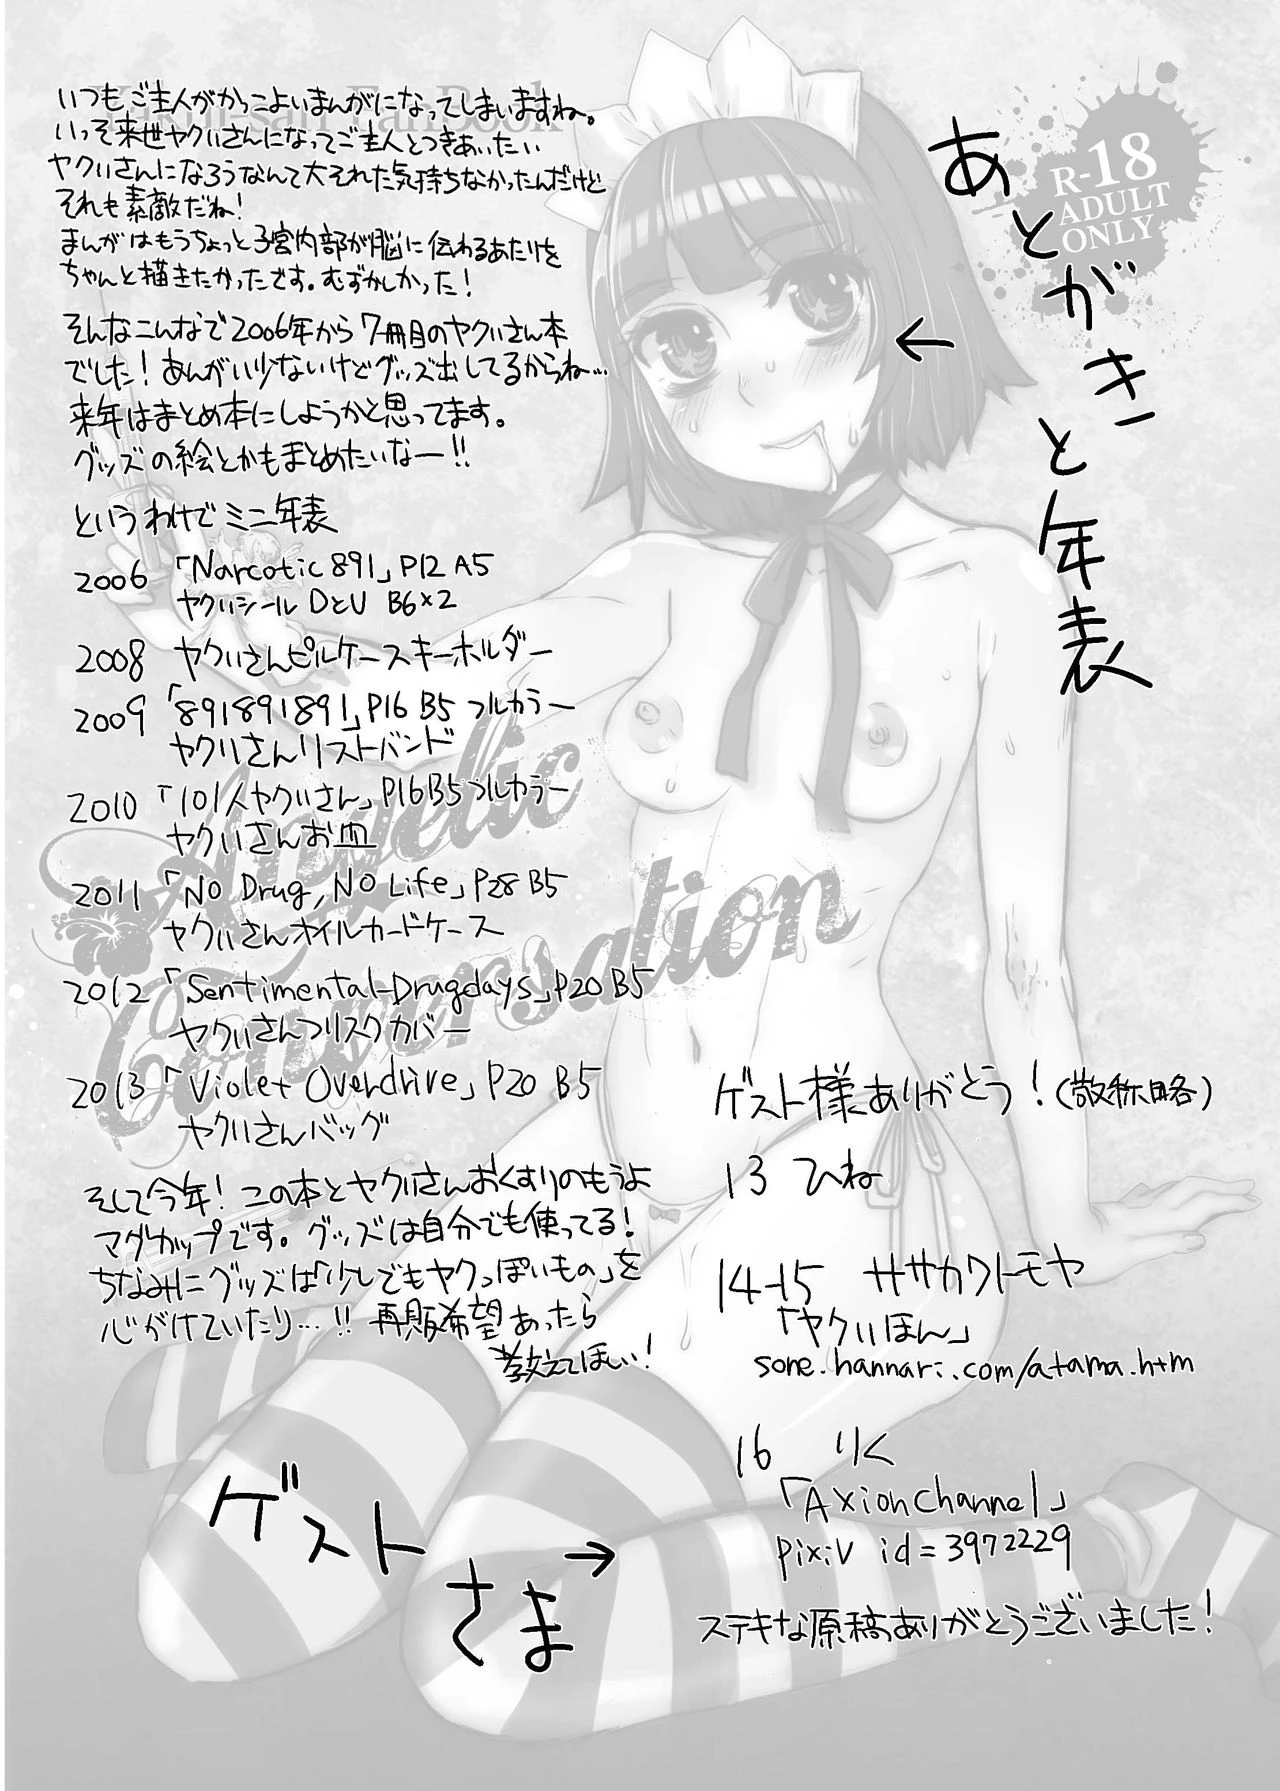 あとがきと年表
R-18
ADULT
ONLY
いつもご主人がかっこよいまんがになってしまいますね。
いっそ来世ヤクいさんになってご主人とつきあいたい
ヤクいさんになろうなんて大それた気持ちなかったんだけど
それも素敵だね!
まんがはもうちょっと子宮内部が脳に伝わるあたりを
ちゃんと描きたかったです。むずかしかった!
そんなこんなで2006年から7冊目のヤクいさん本
でした!あんがい少ないけどグッズ出してるからね…
来年はまとめ本にしようかと思ってます。
グッズの絵とかもまとめたいなー!!
というわけでミニ年表
2006 「Narcotic 891」P12 A5
ヤクいシール DとU B6×2
2008 ヤクいさんピルケースキーホルダー
2009 「891891891」P16 B5 フルカラー
ヤクいさんリストバンド
2010 「101人ヤクいさん」P16 B5 フルカラー
ヤクいさんお皿
2011 「No Drug, No Life」P28 B5
ヤクいさんオイルカードケース
2012 「Sentimental-Drugdays」P20 B5
ヤクいさんフリスクカバー
2013 「Violet Overdrive」P20 B5
ヤクいさんバッグ
そして今年!この本とヤクいさんおくすりのもうよ
マグカップです。グッズは自分でも使ってる!
ちなみにグッズは「少しでもヤクっぽいもの」を
心がけていたり…!! 再販希望あったら
教えてほしい!
Angelic
Conversation
ゲストさま→
ゲスト様ありがとう!(敬称略)
13 ひね
14-15 ササカワトモヤ
「ヤクいほん」
sone.hannari.com/atama.htm
16 りく
「AXionChannel」
pixiv id=3972229
ステキな原稿ありがとうございました!